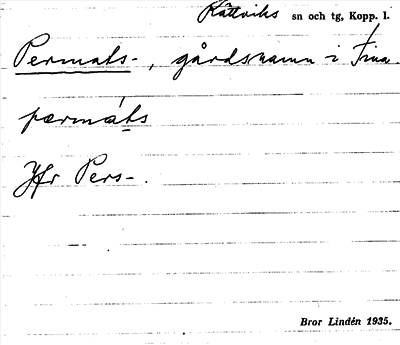 Rättviks sn och tg, Kopp. l.
Permats-, gårdsnamn i
pærmáts
Jfr Pers-.
Bror Lindén 1935.